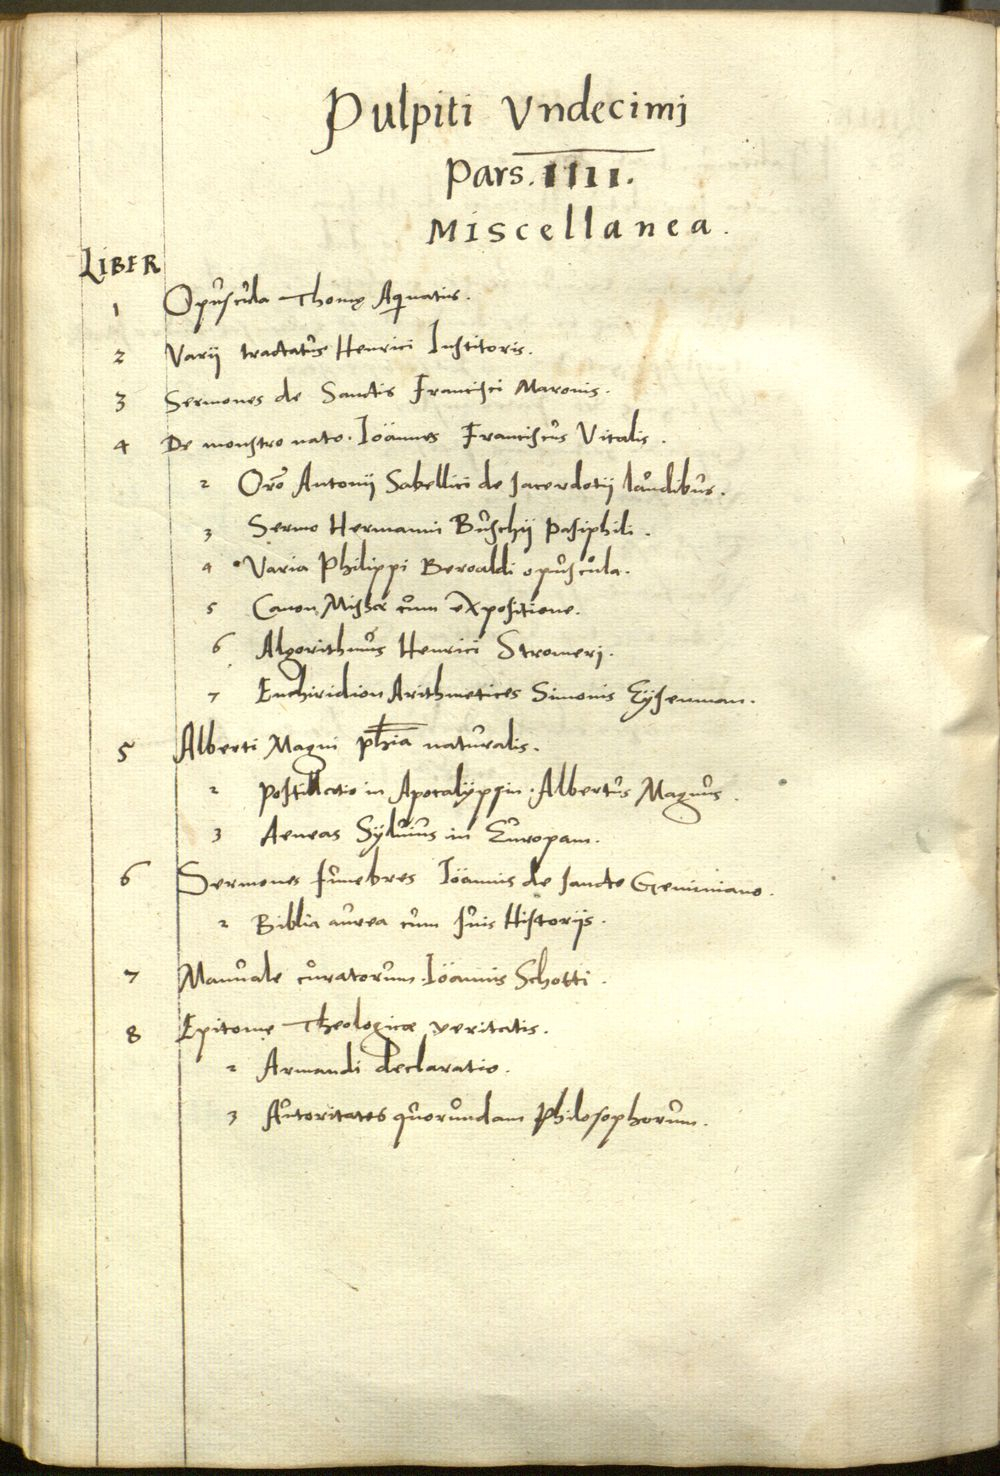 Pulpiti Vndecimj
Pars. IIII.
Miscellanea.
LIBER
1 Opuscula Thomę Aquinatis.
2 Varij tractatus Henrici Institoris.
3 Sermones de Sanctis Francisci Maronis.
4 De monstro nato. Ioannes Franciscus Vitalis.
2 Oro Antonij Sabellici de sacerdotij laudibus.
3 Sermo Hermanni Buschij Pasiphili.
4 Varia Philippi Beroaldi opuscula.
5 Canon Missæ cum expositione.
6 Algorithmus Henrici Stromerj.
7 Enchiridion Arithmetices Simonis Eysenman.
5 Alberti Magni phia naturalis.
2 Postillatio in Apocalypsin. Albertus Magnus.
3 Aeneas Syluius in Europam.
6 Sermones funebres Ioannis de sancto Geminiano.
2 Biblia aurea cum suis Historijs.
7 Manuale curatorum. Ioannis Schotti.
8 Epitome Theologicæ veritatis.
2 Armandi declaratio.
3 Autoritates quorundam Philosophorum.